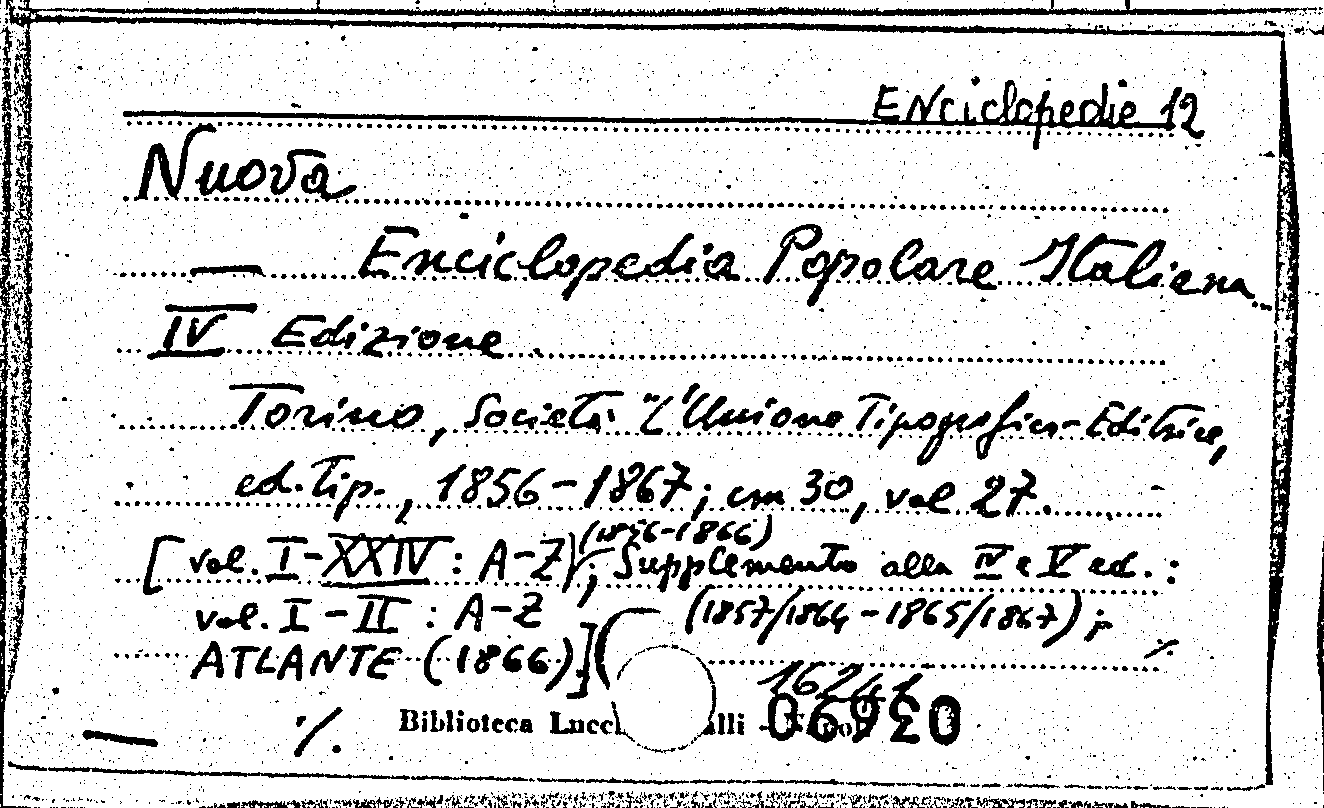 Enciclopedie 12
Nuova
— Enciclopedia Popolare Italiana
IV Edizione.
Torino, Società "L'Unione Tipografico-Editrice,
ed. tip., 1856-1867; cm 30, vol 27.
(1856-1866)
[vol. I-XXIV: A-Z); Supplemento alla IV e V ed.:
vol. I-II: A-Z (1857/1864-1865/1867);
ATLANTE (1866).]
./.
16241
Biblioteca